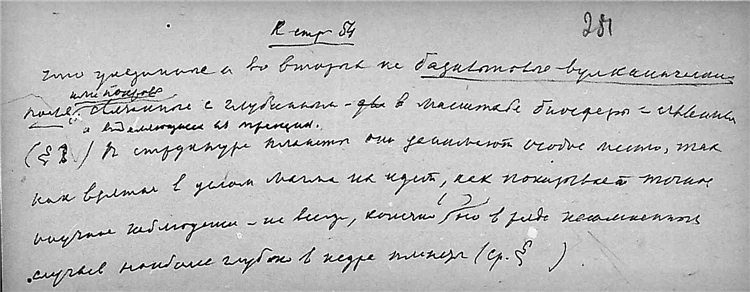 К стр 54
281
что уединенное а во вторых не базальтовые вулканические
или покров
поле, связанное с глубинами – в масштабе биосферы – явления
и выделяющиеся из трещин.
(§ ) В структуре планеты они занимают особое место, так
как взятая в целом магма их идет, как показывает точное
научное наблюдение – не всегда, конечно (?) но в ряде несомненных
случаев наиболее глубоко в недре планеты (ср. § ).